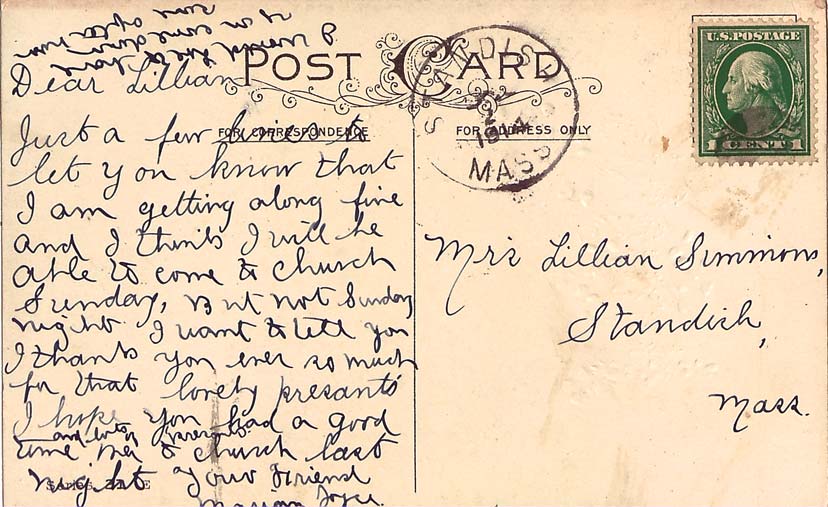 Dear Lillian
POST CARD
FOR CORRESPONDENCE
FOR ADDRESS ONLY
U.S. POSTAGE
1 CENT 1
STANDISH
1914
MASS
Just a few lines to
let you know that
I am getting along fine
and I think I will be
able to come to church
Sunday, But not Sunday
night I want to tell you
I thank you ever so much
for that lovely presant
I hope you had a good
and lots presants
time at church last
night Your Friend
Joyce.
Mrs Lillian Simmons,
Standish,
Mass.